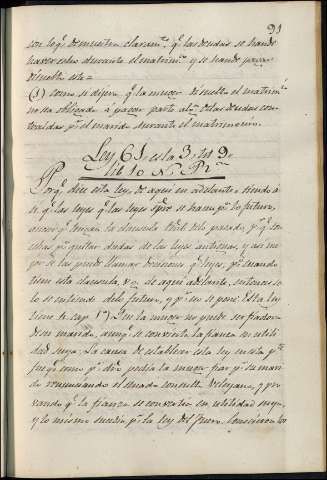 91
con lo q.e demuestra claram.te q.e las deudas se han de
hacer estas durante el matrim.o y se han de pagar
disuelto este =
(1) como se dijera q.e la muger disuelto el matrim.o
no esta obligada a pagar parte alg.a delas deudas con-
traidas p.r el marido durante el matrimonio.
Ley 61, es la 3, tit 9.
lib 10 N. R.on
Porq.e dice esta ley de aqui en adelante, siendo a
si q.e las leyes q.e las leyes sp.re se han p.a lo futuro,
ancor q.e tengan la clausula util delo pasado, y q.e son
chas p.a quitar dudas de las leyes antiguas, y asi me
jor se las puede llamar decisiones q.e leyes, p.o cuando
tiene esta clausula, v.g. de aqui adelante, entonces so
lo se entiende delo futuro, y p.r eso se pone. Esta ley
tiene tr. cap. 1.o) Que la muger no puede ser fiadora
de su marido, aunq.e se convierta la fianza en utili-
dad suya. La causa de establecer esta ley en esta p.te
fue q.e como p.r dro podia la muger fiar p.r su mari-
do renunciando el senado consulto Veleyano, y pro-
vando q.e la fianza se convertia en utilidad suya,
y lo mismo sucedia p.r la ley del fuero.